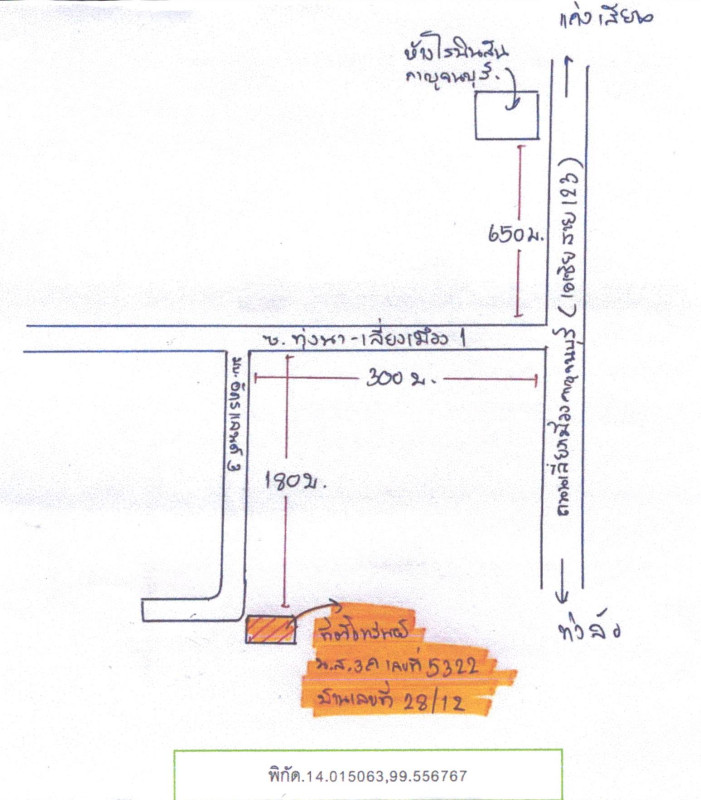 แก่งเสี้ยน
ห้างโรบินสัน
กาญจนบุรี.
650ม.
ถนนเลี่ยงเมืองกาญจนบุรี (เอเชีย สาย 123)
ซ. ทุ่งนา-เลี่ยงเมือง 1
300 ม.
มบ.
แลนด์ 3
180ม.
ที่ตั้งทรัพย์
น.ส.3ก เลขที่ 5322
บ้านเลขที่ 28/12
ท่าล้อ
พิกัด.14.015063,99.556767